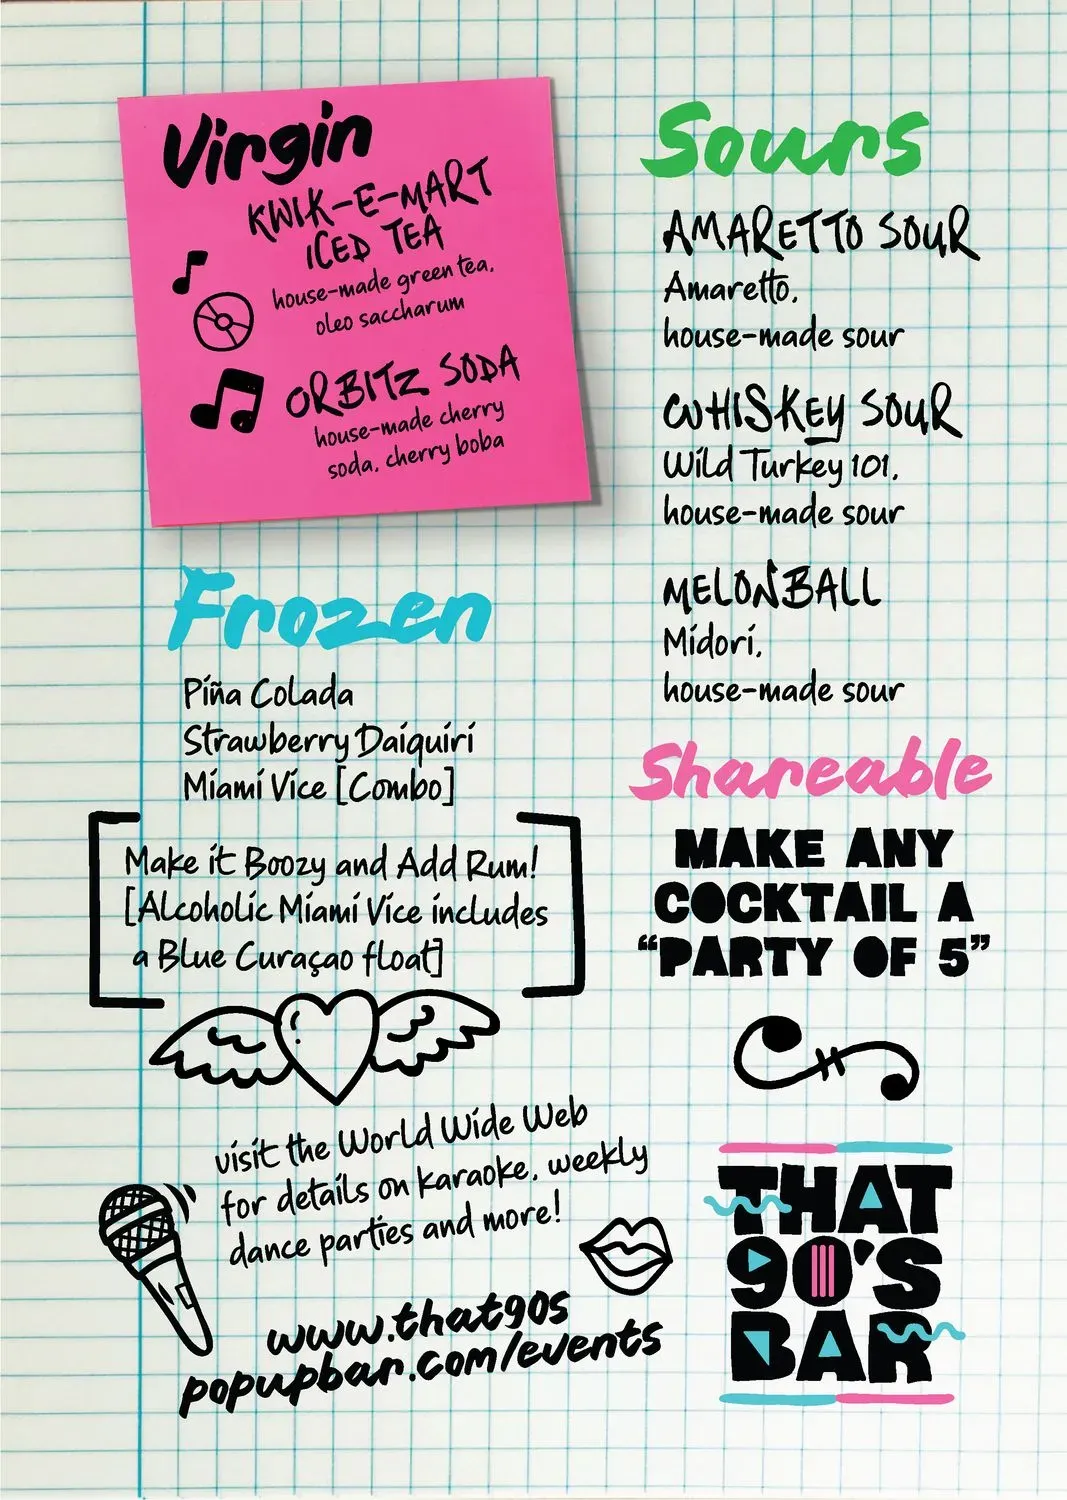 Virgin
KWIK-E-MART
ICED TEA
house-made green tea,
oleo saccharum
ORBITZ SODA
house-made cherry
soda, cherry boba
Frozen
Piña Colada
Strawberry Daiquiri
Miami Vice [Combo]
Make it Boozy and Add Rum!
[Alcoholic Miami Vice includes
a Blue Curaçao float]
visit the World Wide Web
for details on karaoke, weekly
dance parties and more!
www.that90s
popupbar.com/events
Sours
AMARETTO SOUR
Amaretto,
house-made sour
WHISKEY SOUR
Wild Turkey 101,
house-made sour
MELONBALL
Midori,
house-made sour
Shareable
MAKE ANY
COCKTAIL A
“PARTY OF 5”
THAT
90'S
BAR